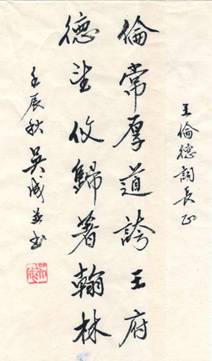 王倫德詞長正
倫常厚道誇王府
德望攸歸著翰林
壬辰秋 吳成岳書